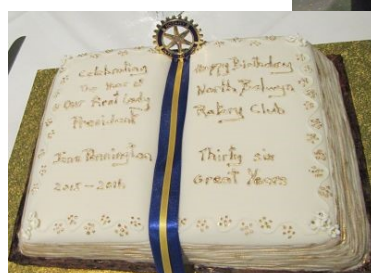 Celebrating
The Year of
Our First Lady
President
Pennington
2015 - 2016
Happy Birthday
North Balwyn
Rotary Club
Thirty six
Great Years